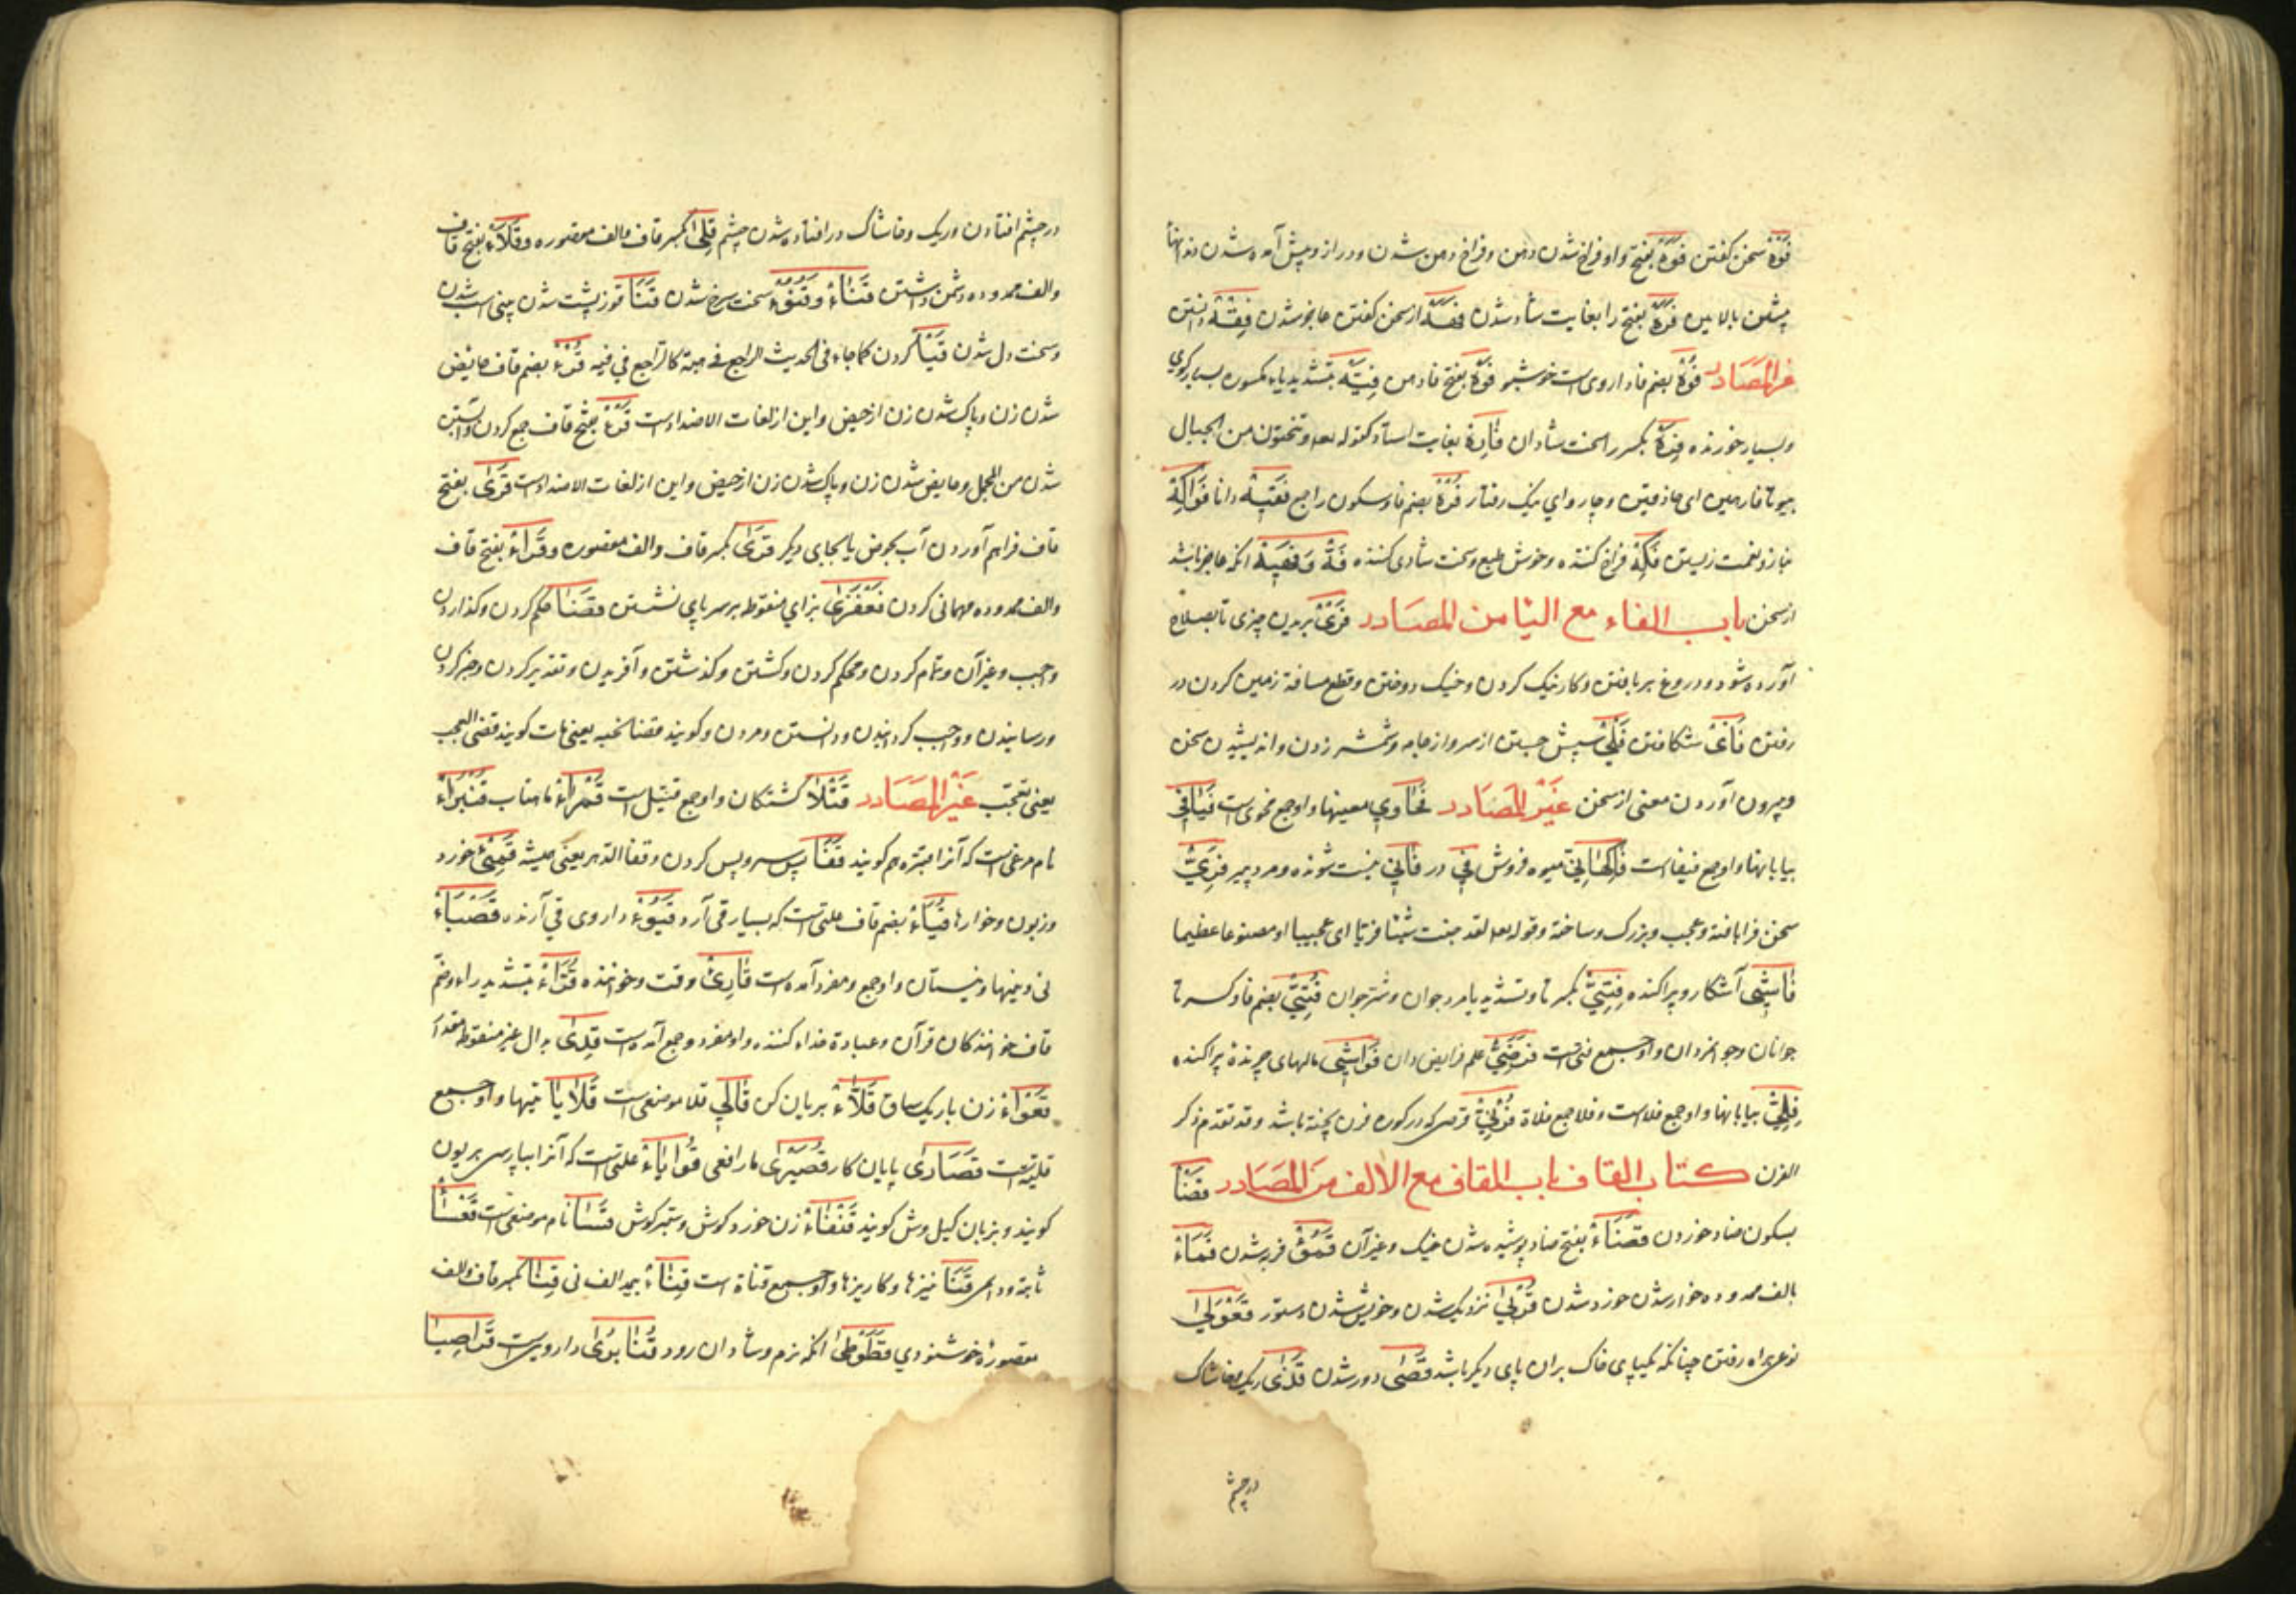 فَوْهٌ سخن گفتن فَوَهٌ بفتح واو فراخ شدن دهن و فراخ دهن شدن و دراز و پیش آمده شدن دندانها
پیشین بالایین فَرَهٌ بفتح را بغایت شاد شدن فَهَهٌ از سخن گفتن عاجز شدن فِقْهٌ دانستن
غیر المَصَادر فُوهٌ بضم فا داروی است خوشبو فَوْهٌ بفتح فا دهن فَیِّهٌ بتشدید یاء مکسوره بسیار گوی
و بسیار خورنده فَرِهٌ بکسر را سخت شادان فَارِهٌ بغایت استاد کقوله تعالی و تنحتون من الجبال
بیوتا فارهین ای حاذقین و چاروای نیک رفتار فُرْهٌ بضم فا و سکون را جمع فَقِیْهٌ دانا فَوَاکِهُ
بناز و نعمت زیستن فَکِهٌ فراخ کننده و خوش طبع و سخت شادی کننده فَهٌّ وَ فَهِیْهٌ آنکه عاجز باشد
از سخن باب الفاء مع الیا من المصَادر فَرْیٌ بریدن چیزی تا بصلاح
آورده شود و دروغ بربافتن و کار نیک کردن و خیک دوختن و قطع مسافة زمین کردن در
رفتن فَأْیٌ شکافتن فَلْیٌ سپش جستن از سر و از جامه و شمشیر زدن و اندیشیدن سخن
و بیرون آوردن معنی از سخن غَیْر المَصَادر فَحَاوِي معنیها و او جمع فحوی است فَیَافِي
بیابانها و او جمع فیفاست فَاکِهَانِيٌّ میوه فروش فِي در فَانِي نیست شونده و مرد پیر فَرِيٌّ
سخن فرابافته و عجب و بزرگ و ساخته و قوله تعالی لقد جئت شیئا فریا ای عجیبا او مصنوعا عظیما
فَاشِي آشکار و پراکنده فَتِيٌّ بکسر تا و تشدید یا مرد جوان و شتر جوان فُتِيٌّ بضم فا و کسر تا
جوانان و جوانمردان و او جمع فتی است فَرَضِيٌّ علم فرایض دان فَوَاشِي مالهای چرنده پراکنده
فِلِيٌّ بیابانها و او جمع فلاست و فلا جمع فلاة فُرْنِيَّةٌ قرصی که در کوره فرن پخته باشد و قد تقدم ذکر
الفرن کتاب القاف باب القاف مع الالف مِنَ المَصَادر قَضْأٌ
بسکون ضاد خوردن قَضَأٌ بفتح ضاد پوشیده شدن خیک و غیر آن قَمْؤٌ فربه شدن قَمَاءٌ
بالف ممدوده خوار شدن خورد شدن قُرْبَی نزدیک شدن و خویش شدن دستور قَعْوَلَی
نوعی براه رفتن چنانکه بیکپای خاک بران پای دیگر باشد قَصَی دور شدن قَذَی ریک و خاشاک
در چشم
در چشم افتادن و ریک و خاشاک درافتاده شدن چشم قِلَی بکسر قاف والف مقصوره و قَلَاءٌ بفتح قاف
والف ممدوده دشمن داشتن قَنَاءٌ و قُنُوءٌ سخت سرخ شدن قَنَا قوز پشت شدن بینی اسب شدن
و سخت دل شدن قَیْأٌ کردن کما جاء فی الحدیث الراجع فی هبته کالراجع فی قیئه قُرْءٌ بضم قاف حایض
شدن زن و پاک شدن زن از حیض و این از لغات الاضداد است قَرْءٌ بفتح قاف جمع کردن و آبستن
شدن من المجمل و حایض شدن زن و پاک شدن زن از حیض و این از لغات الاضداد است قَرْیٌ بفتح
قاف فراهم آوردن آب بحوض یا بجایی دیگر قِرَی بکسر قاف والف مقصوره وقَرَاءٌ بفتح قاف
والف ممدوده مهمانی کردن قَعْفَزَی بزای منقوطه بر سر پای نشستن قَضَا حکم کردن و گذاردن
واجب و غیر آن و تمام کردن و محکم کردن و کشتن و گذشتن و آفریدن و تقدیر کردن و خبر کردن
و رسانیدن و واجب گردانیدن و دانستن و مردن و گویند قضا نحبه یعنی مات گویند قضی العجب
یعنی تعجّب غَیْر المَصَادر قَتْلَا کشتگان و او جمع قتیل است قَمْرَاءُ ماهتاب قُنْبَرَاءُ
نام مرغی است که آنرا قبّره هم گویند قَفَا پس سر و پس گردن و قفا الدّهر یعنی همیشه قَمِیْءٌ خورد
و زبون و خوار قُیَاءٌ بضم قاف علتی است که بسیار قی آرد قَیُوْءٌ داروی قی آرنده قَصْبَاءُ
نی و نیها و نیستان و او جمع و مفرد آمده است قَارِئٌ وقت و خواننده قُرَّاءٌ بتشدید راء و ضم
قاف خوانندکان قرآن و عبادة خداء کننده و او مفرد و جمع آمده است قِدَی بدال غیر منقوطه مقدار
قَعْوَاءُ زن باریک ساق قَلَّاءٌ بریان کن قَالِي قلا موضعی است قَلَایَا قلیها و او جمع
قلیّه است قُصَارَی پایان کار قُصَیْرَی مار افعی قُوَبَاءُ علتی است که آنرا بپارسی بریون
گویند و بزبان کیل وش گویند قَنْفَاءُ زن خورد گوش و ستبر گوش قَسَا نام موضعی است قَعْسَا
ثابتة و دایمی قَنَا نیزها و کاریزها و او جمع قناة است قِثَاءٌ بمد الف نی قِنَا بکسر قاف والف
مقصورة خوشنودی قَطَوْطَی آنکه نرم و شادان رود قُنَابَرَی دارویست قَرَاصِیَا